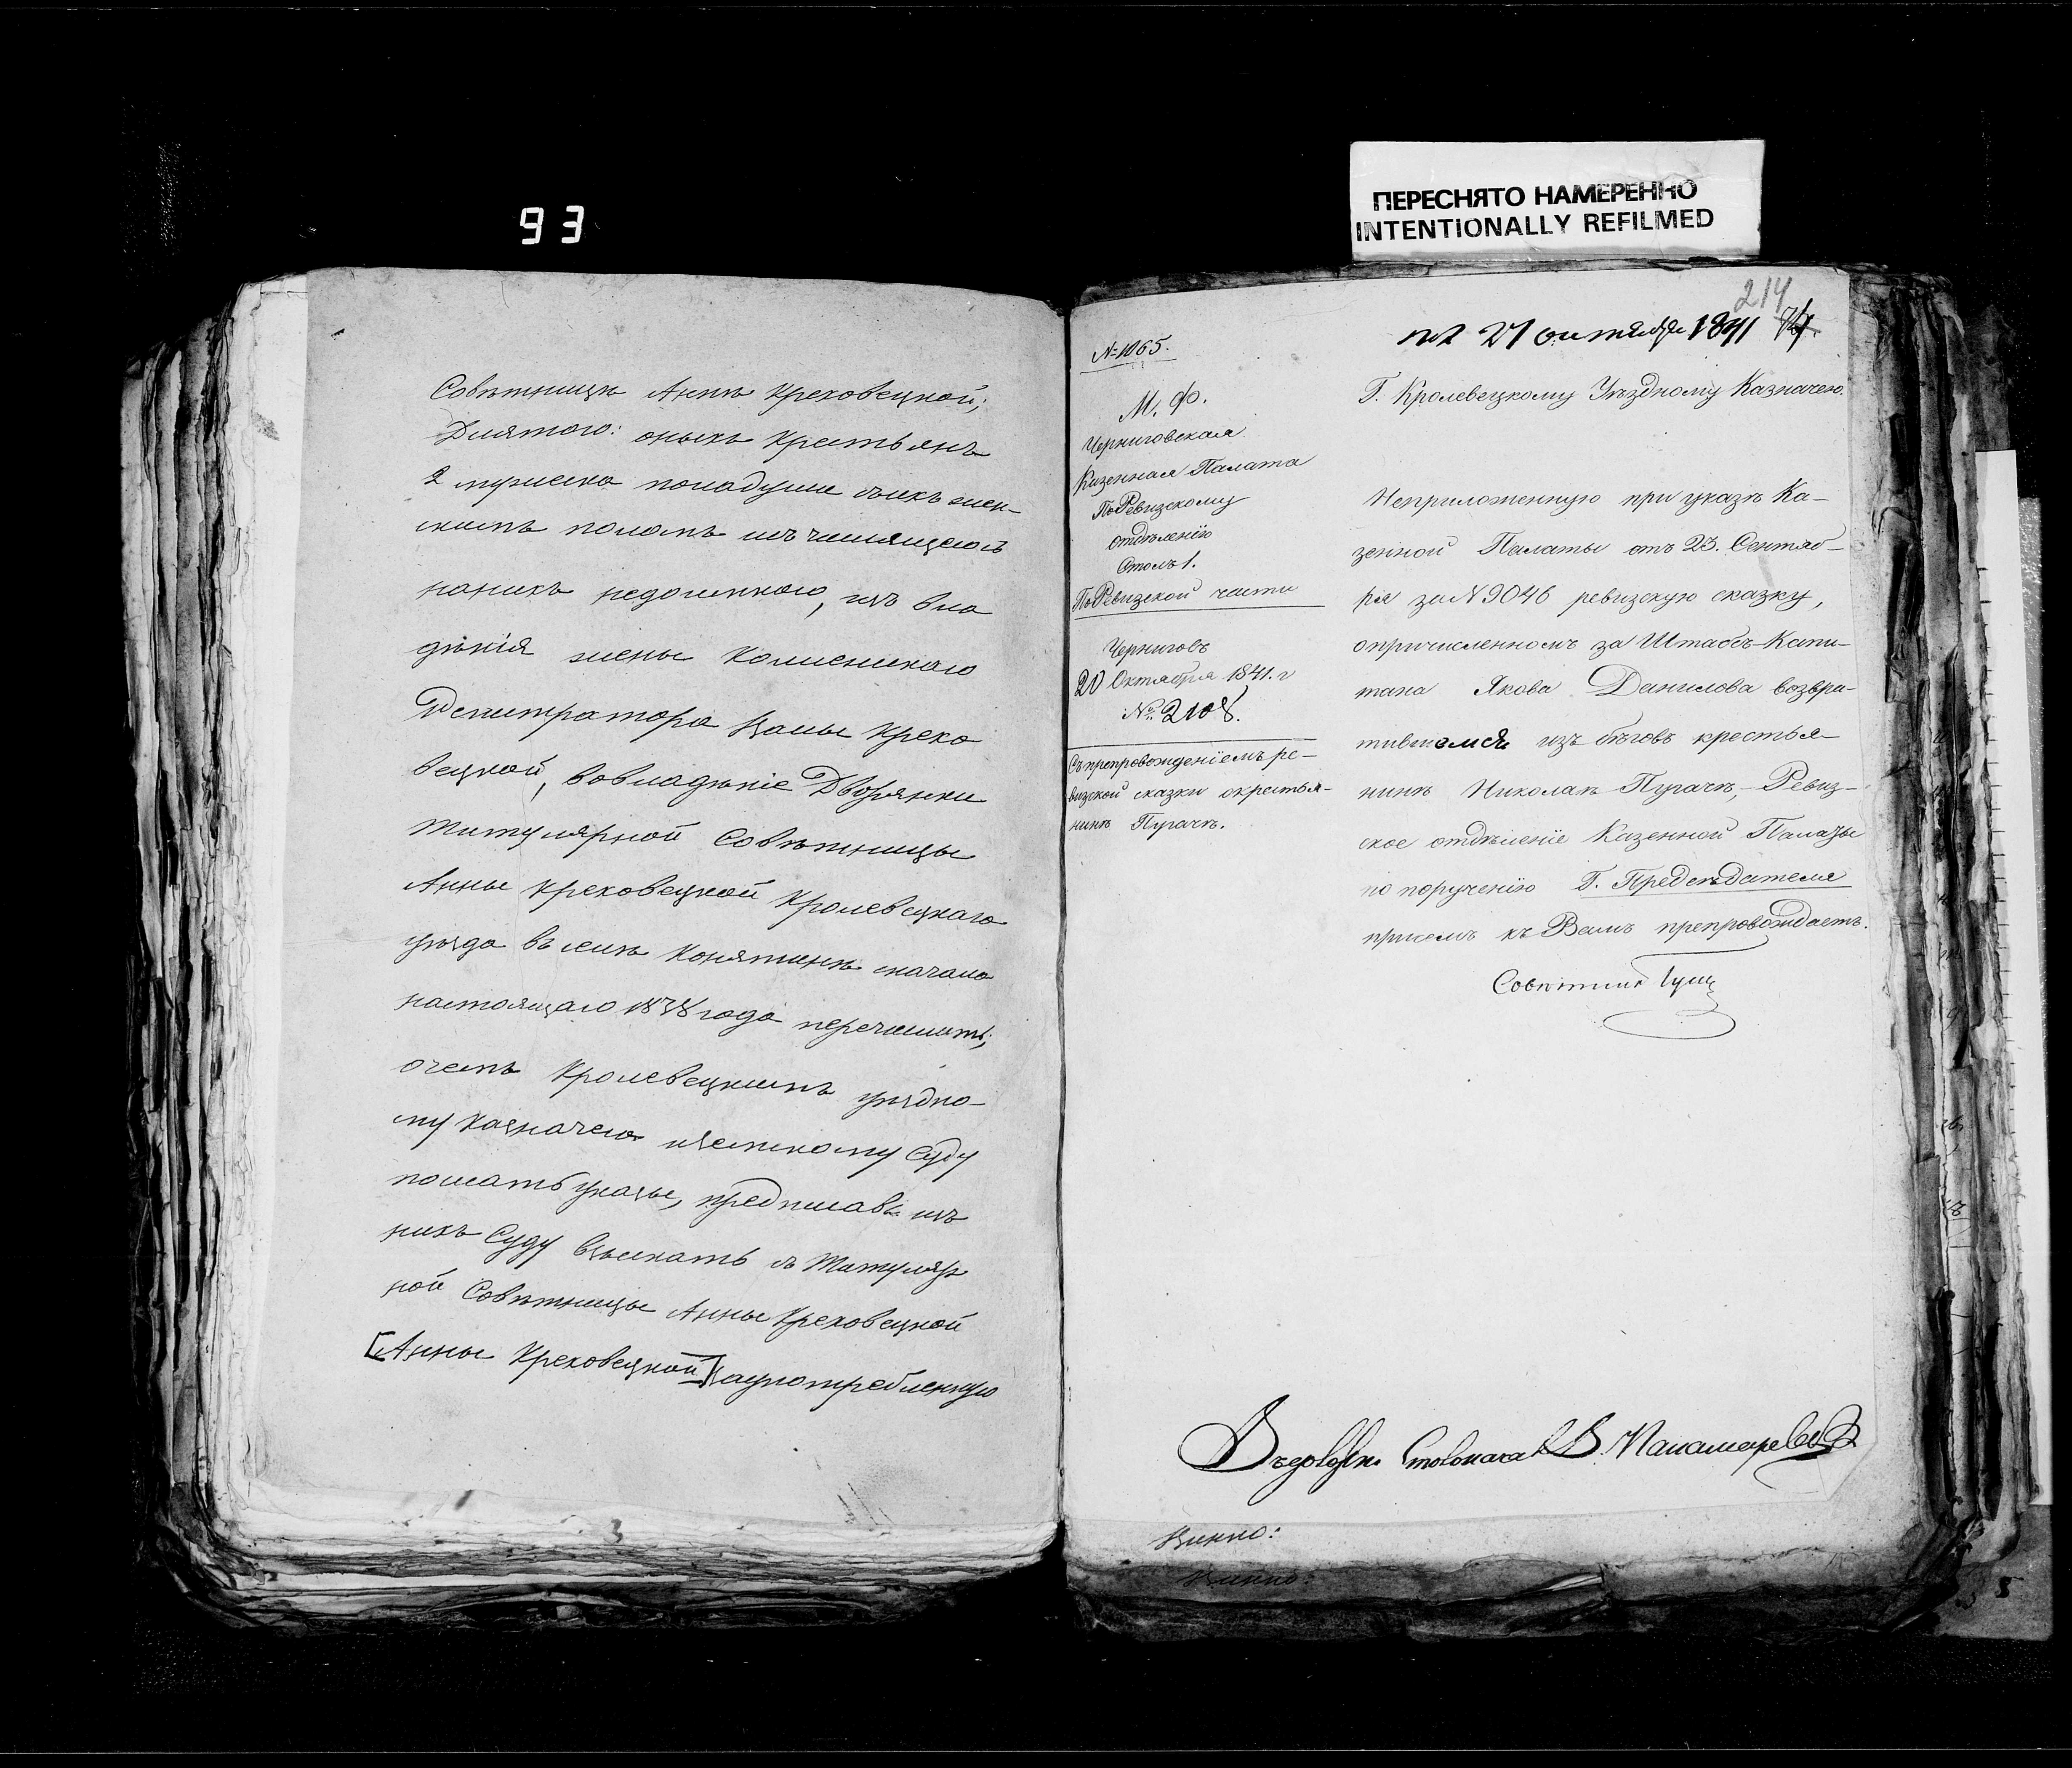 93
ПЕРЕСНЯТО НАМЕРЕННО
INTENTIONALLY REFILMED
Совѣтницѣ Аннѣ Креховецкой;
Длятого: оныхъ крестьянъ
2 мужеска пола души съихъ жен-
скимъ поломъ изъ числящеюсь
нанихъ недоимкою, изъ вла
дѣнія жены Колежскаго
Регистратора Крехо
вецкой, вовладѣніе Дворянки
Титулярной Совѣтницы
Анны Креховецкой Кролевецкаго
уѣзда въ селѣ Конятинѣ сначала
настоящаго 1838 года перечислить;
очемъ Кролевецкимъ уѣздно-
му Казначею иЗемскому Суду
послать указы, предписавъ изъ
нихъ Суду взыскать съ Титуляр
ной Совѣтницы Анны Креховецкой
[Анны Креховецкой] заупотребленную
214
27 октября 1841
№ 1065.
М. Ф.
Черниговская
Казенная Палата
ПоРевизскому
отдѣленію
Столъ 1.
ПоРевизской части
Черниговъ
20 Октября 1841. г
№ 2108.
Съпрепровожденіемъ ре-
визской сказки окрестья-
нинѣ Пугачѣ.
Г. Кролевецкому Уѣздному Казначею.
Неприложенную при указѣ Ка-
зенной Палаты отъ 23. Сентяб-
ря за N 9046 ревизскую сказку,
опричисленномъ за Штабсъ-Капи-
тана Якова Данилова возвра-
тившемся изъ бѣговъ крестья-
нинѣ Николаѣ Пугачѣ, - Ревиз-
ское отдѣленіе Казенной Палаты
по порученію Г. Предсѣдателя
присемъ къ Вамъ препровождаетъ.
Совѣтникъ
Столоначал